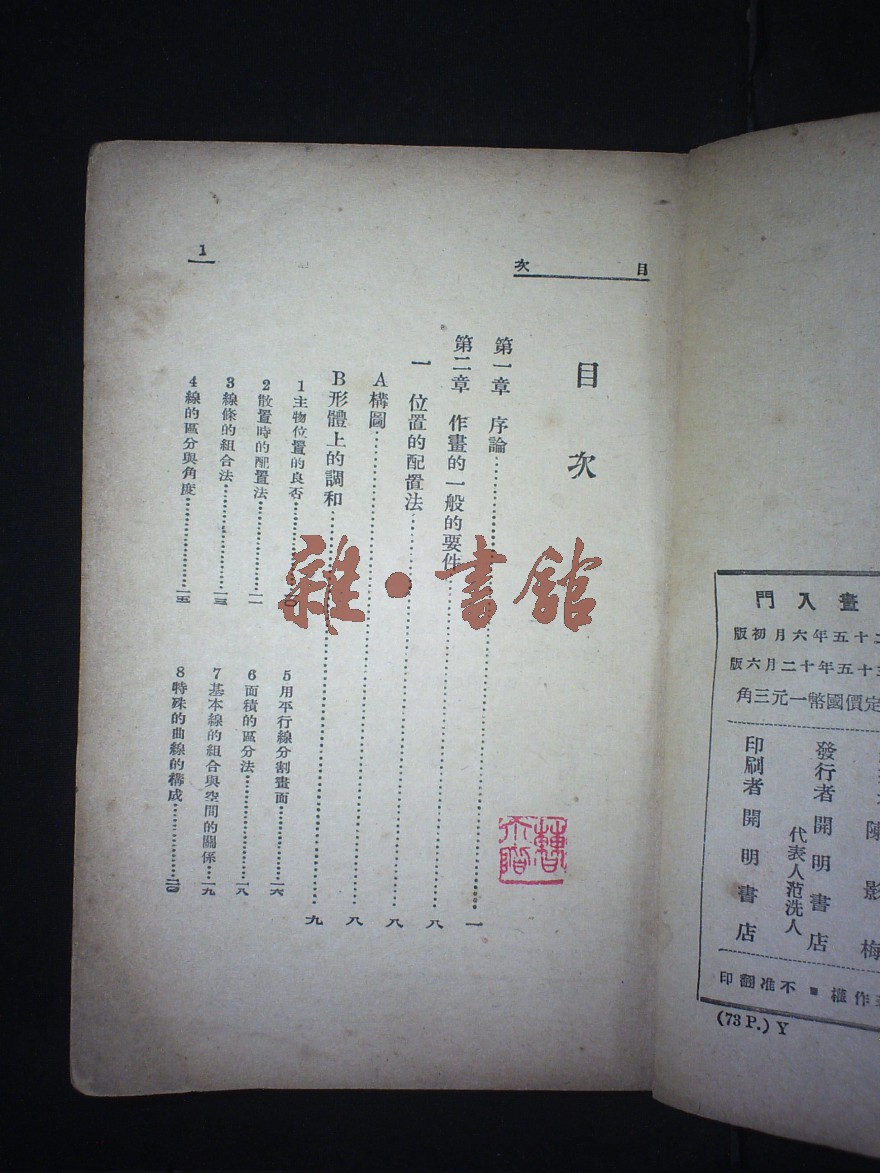 目次
1
目次
第一章 序論⋯⋯一
第二章 作畫的一般的要件⋯⋯八
一 位置的配置法⋯⋯八
A構圖⋯⋯八
B形體上的調和⋯⋯九
1主物位置的良否⋯⋯一〇
2散置時的配置法⋯⋯一一
3線條的組合法⋯⋯一三
4線的區分與角度⋯⋯一五
5用平行線分割畫面⋯⋯一六
6面積的區分法⋯⋯一八
7基本線的組合與空間的關係⋯一九
8特殊的曲線的構成⋯⋯二〇
雜·書館
畫入門
二十五年六月初版
十五年十二月六版
定價國幣一元三角
陳影梅
發行者 開明書店
代表人范洗人
印刷者 開明書店
作權■不准翻印
(73 P.) Y